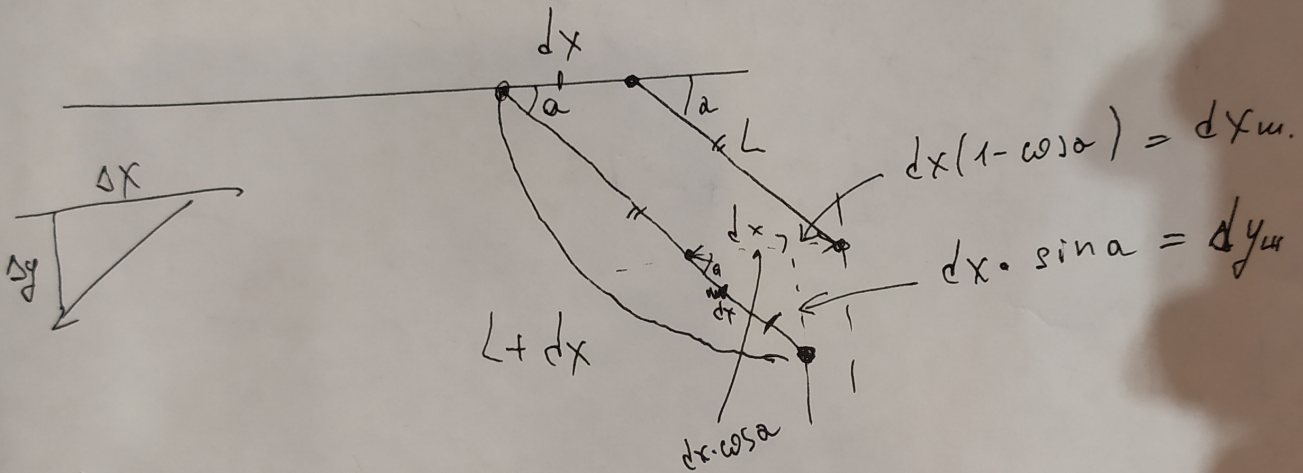 dx
a
a
L
dx(1-cosa) = dxш.
Δx
dx
dx • sina = dyш
Δy
a
dx
L + dx
dx•cosa